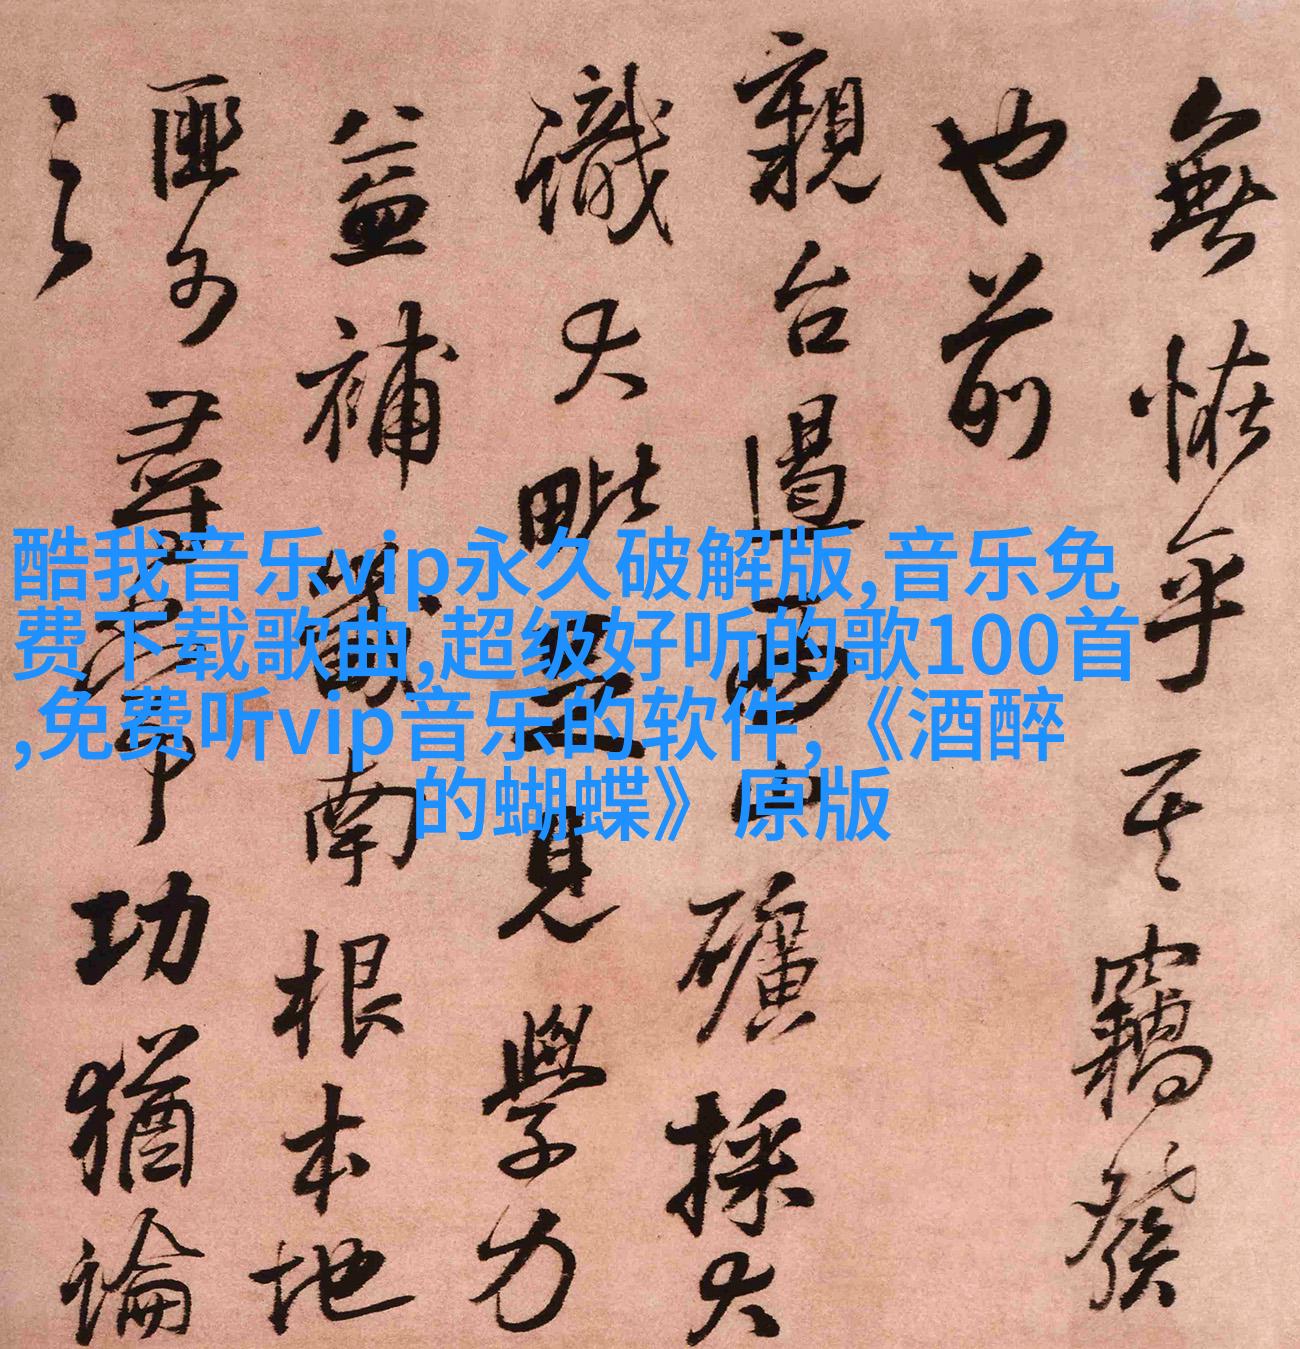 酷我音乐vip永久破解版,音乐免
费下载歌曲,超级好听的歌100首
,免费听vip音乐的软件,《酒醉
的蝴蝶》原版
無怪乎其竊發
也前
親台礦採大
識大毗見學力
益補南根本地
匪尋常功猶論
之